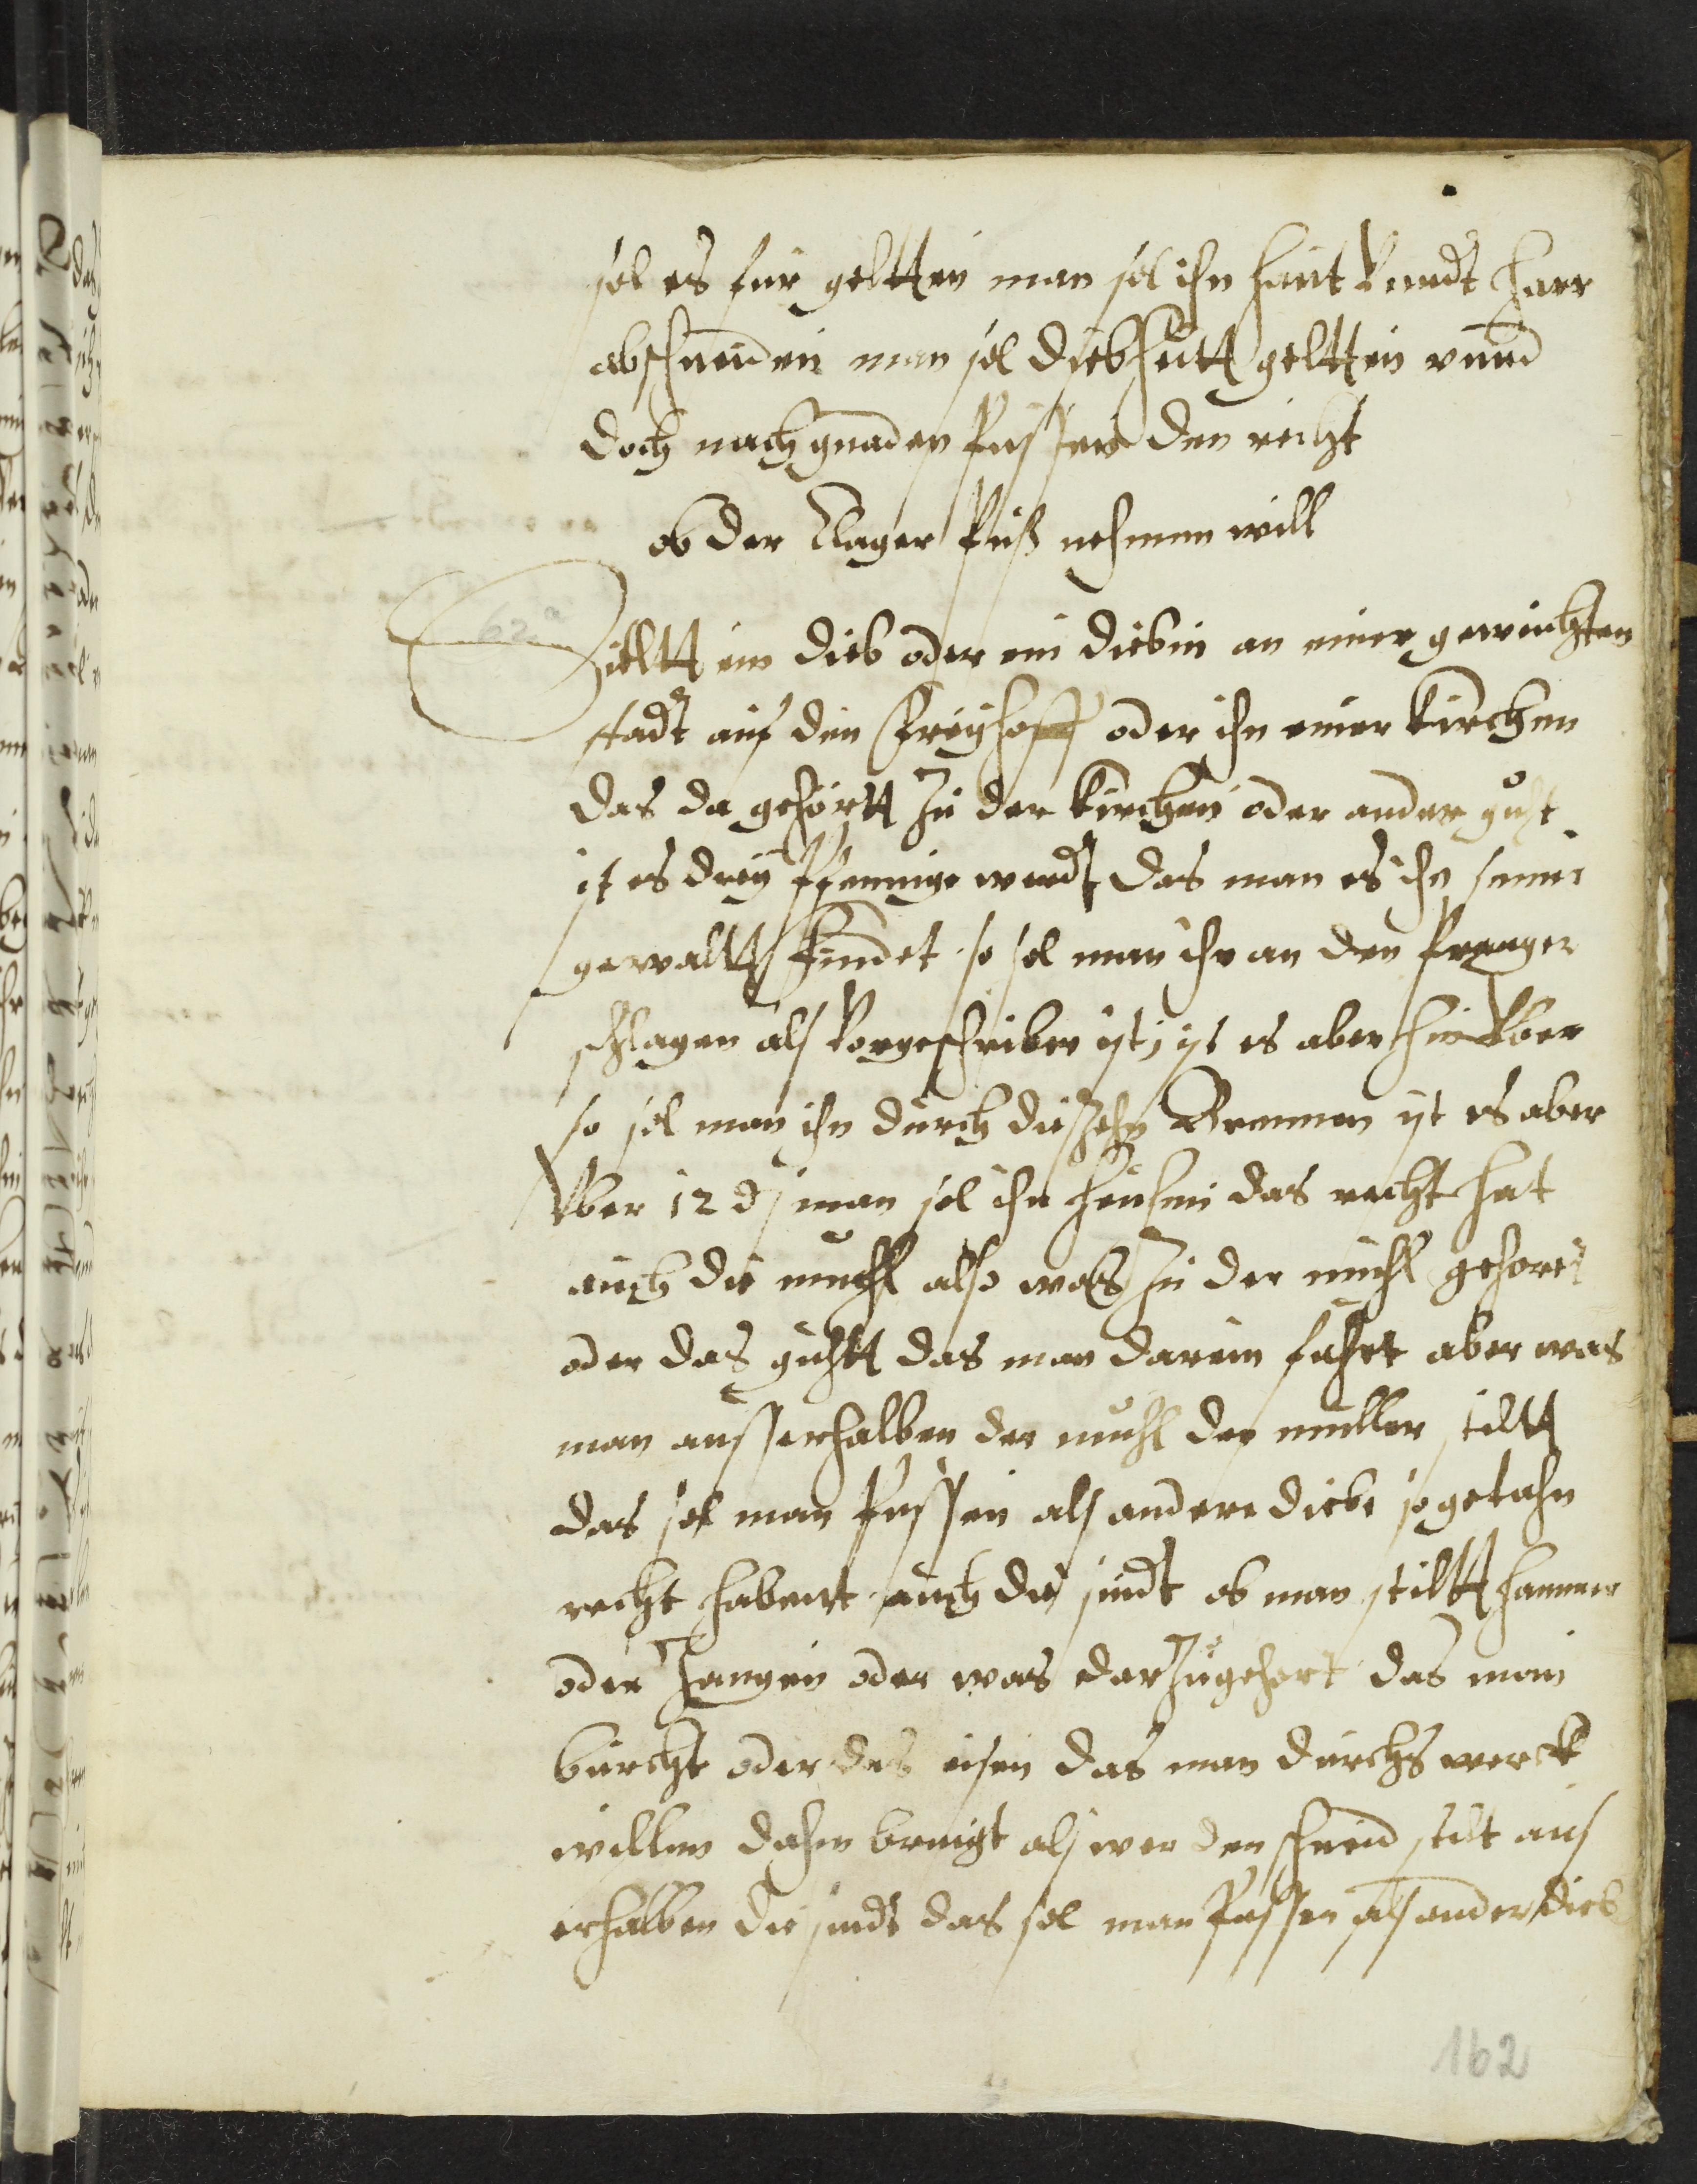 sol es fur geltten man sol ihn haut vnndt harr
abschneiden man sol diebhutt geltten vnnd
doch nach gnaden pussen den recht
ob der clager puß nehmen will
62
Stieltt ein dieb oder ein diebin an einer geweichten
stadt auf den Freyhoff oder ihn einer kirchen
das da gehörtt zu der kirchen oder ander guht
ist es drey pfennige werdt das man es ihn seiner
gewaltt findet so sol man ihn an den pranger
schlagen als vorgeschriben ist, ist es aber hinvber
so sol man ihn durch die zehn Brennen ist es aber
vber 12 d man sol ihn henhen das recht hat
auch die muehl also wass zu der muhl gehoret
oder das guhtt das man darein fuhrt aber was
man ausserhalben der muhl der muller stiltt
das sol man pussen als andere diebe so getahn
recht habent auch die smidt ob man stiltt hammer
oder zangen oder was darzugehort das man
burcht oder das eisen das man durchs werck
willen dahin bringt als wer den schmid stilt aus
erhalben die smidt das sol man pussen als ander dieb
162